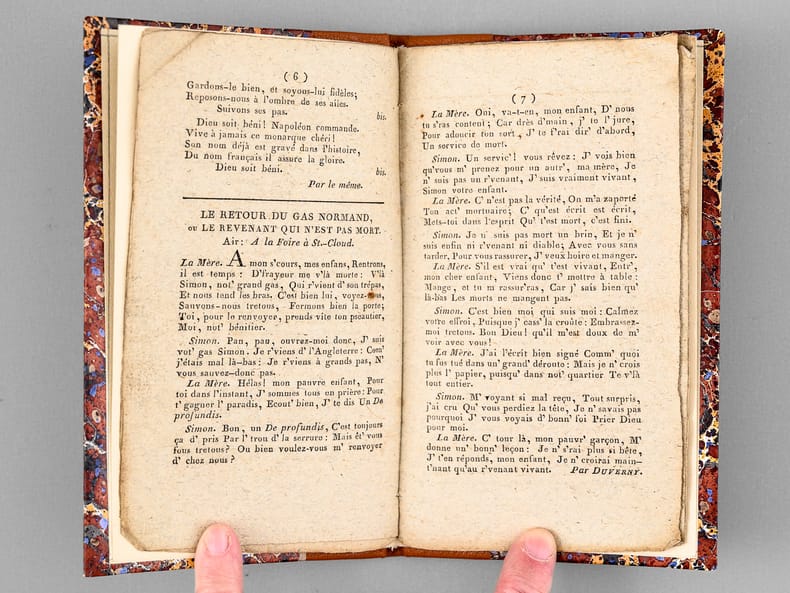 ( 6 )
Gardons-le bien, et soyons-lui fidèles;
Reposons-nous à l'ombre de ses ailes.
Suivons ses pas. bis.
Dieu soit béni! Napoléon commande.
Vive à jamais ce monarque chéri!
Son nom déjà est gravé dans l'histoire,
Du nom français il assure la gloire.
Dieu soit béni. bis.
Par le même.
LE RETOUR DU GAS NORMAND,
ou LE REVENANT QUI N'EST PAS MORT.
Air: A la Foire à St.-Cloud.
La Mère. A mon s'cours, mes enfans, Rentrons,
il est temps: D'frayeur me v'là morte: V'là
Simon, not' grand gas, Qui r'vient d' son trépas,
Et nous tend les bras. C'est bien lui, voyez-vous,
Sauvons-nous tretous, Fermons bien la porte;
Toi, pour le renvoyer, prends vite ton pseautier,
Moi, not' bénitier.
Simon. Pan, pau, ouvrez-moi donc, J' suis
vot' gas Simon. Je r'viens d' l'Angleterre: Com'
j'étais mal là-bas: Je r'viens à grands pas, N'
vous sauvez-donc pas.
La Mère. Hélas! mon pauvre enfant, Pour
toi dans l'instant, J' sommes tous en prière: Pour
t' gagner l' paradis, Ecout' bien, J' te dis Un De
profundis.
Simon. Bon, un De profundis, C'est toujours
ça d' pris Par l' trou d' la serrure: Mais êt' vous
fous tretous? Ou bien voulez-vous m' renvoyer
d' chez nous?
( 7 )
La Mère. Oui, va-t-en, mon enfant, D' nous
tu s'ras content; Car drès d'main, j' te l' jure,
Pour adoucir ton sort, J' te f'rai dir' d'abord,
Un service de mort.
Simon. Un servic'! vous rêvez: J' vois bien
qu'vous m' prenez pour un autr', ma mère, Je
n' suis pas un r'venant, J' suis vraiment vivant,
Simon votre enfant.
La Mère. C' n'est pas la vérité, On m'a zaporté
Ton act' mortuaire; C' qu'est écrit est écrit,
Mets-toi dans l'esprit Qu' t'est mort, c'est fini.
Simon. Je n' suis pas mort un brin, Et je n'
suis enfin ni r'venant ni diable; Avec vous sans
tarder, Pour vous rassurer, J' veux boire et manger.
La Mère. S'il est vrai qu' t'est vivant, Entr',
mon cher enfant, Viens donc t' mettre à table:
Mange, et tu m' rassur'ras, Car j' sais bien qu'
là-bas Les morts ne mangent pas.
Simon. C'est bien moi qui suis moi: Calmez
votre effroi, Puisque j' cass' la croûte: Embrassez-
moi tretous. Bon Dieu! qu'il m'est doux de m'
voir avec vous!
La Mère. J'ai l'écrit bien signé Comm' quoi
tu fos tué dans un' grand déroute: Mais je n' crois
plus l' papier, puisqu' dans not' quartier Te v'là
tout entier.
Simon. M' voyant si mal reçu, Tout surpris,
j'ai cru Qu' vous perdiez la tête, Je n' savais pas
pourquoi J' vous voyais d' bonn' foi Prier Dieu
pour moi.
La Mère. C' tour là, mon pauvr' garçon, M'
donne un' bonn' leçon: Je n' s'rai plus si bête,
J' t'en réponds, mon enfant, Je n' croirai main-
t'nant qu'au r'venant vivant. Par DUVERNY.